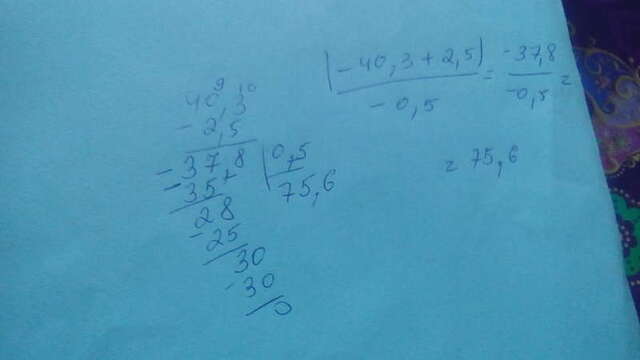 (-40,3+2,5) / -0,5 = -37,8 / -0,5 =
= 75,6
9 10
40,3
- 2,5
- 37,8 | 0,5
- 35 | 75,6
28
- 25
30
- 30
0